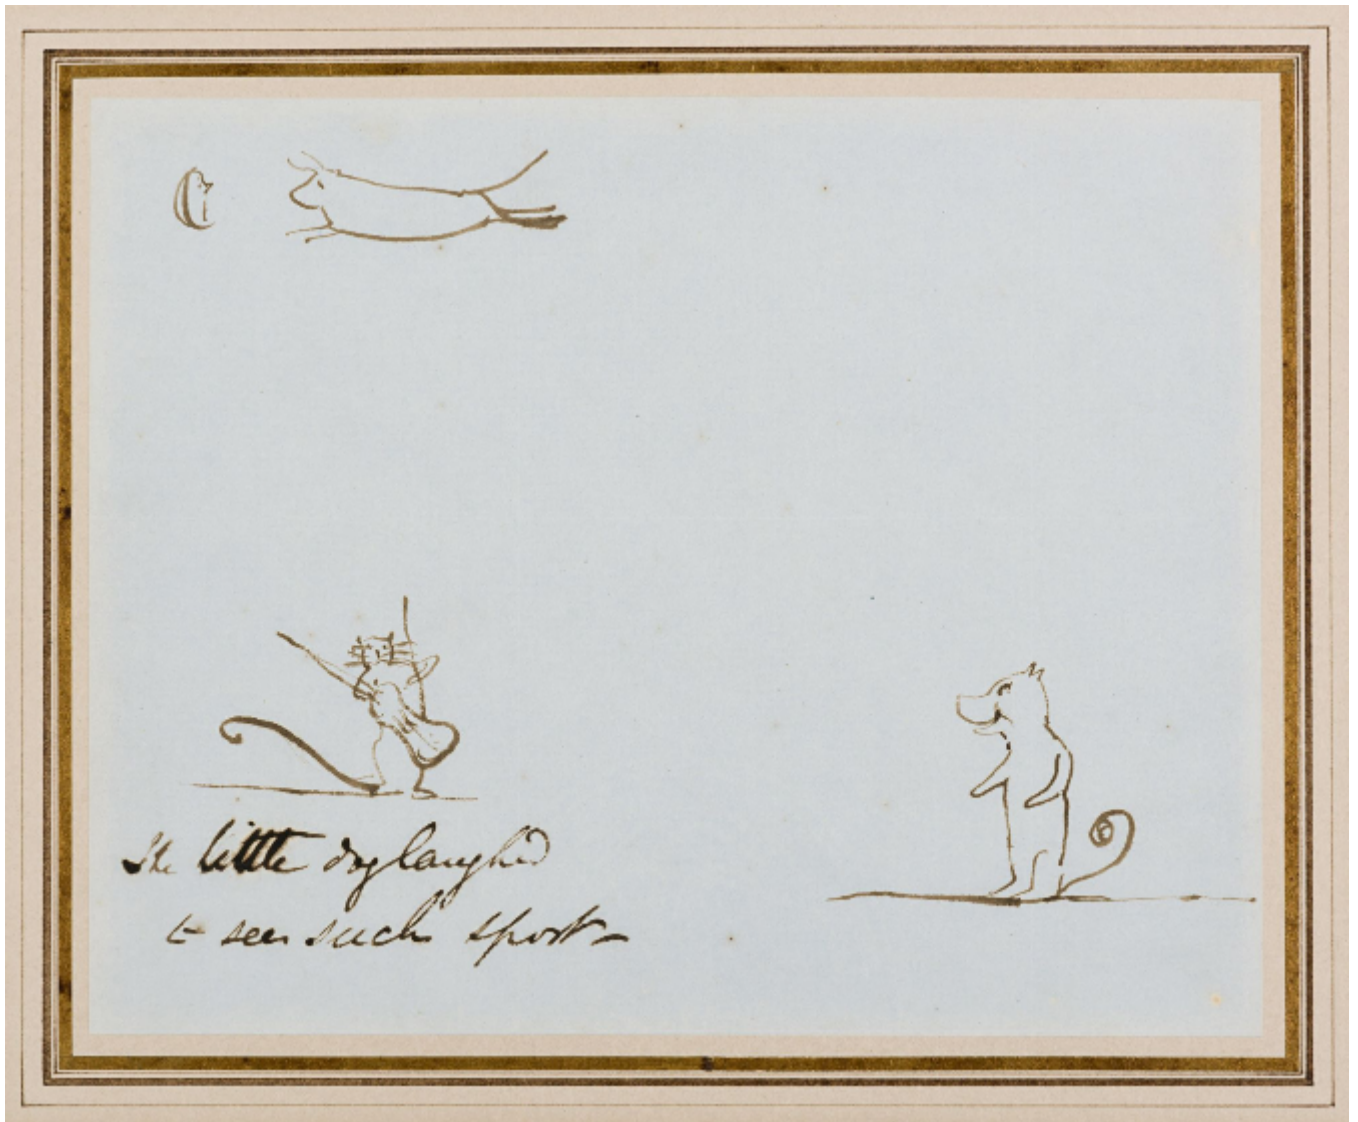 The little dog laughed
to see such sport –